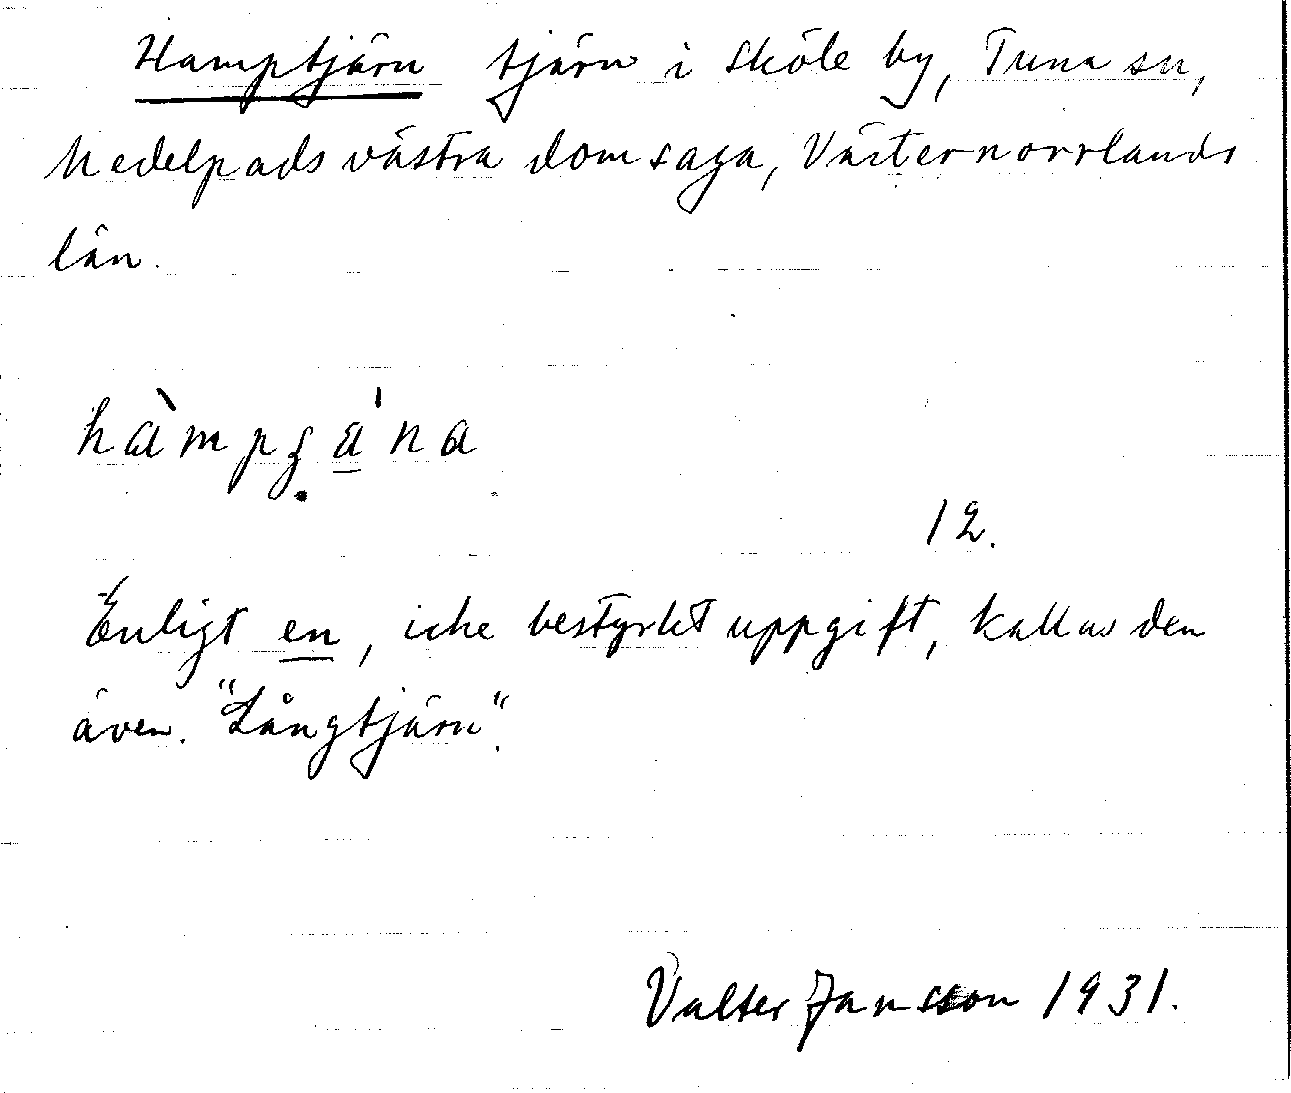 Hamptjärn tjärn i Sköle by, Tuna sn,
Medelpads västra domsaga, Västernorrlands
län.
12.
Enligt en, icke bestyrkt uppgift, kallas den
även "Långtjärn".
Valter Jansson 1931.